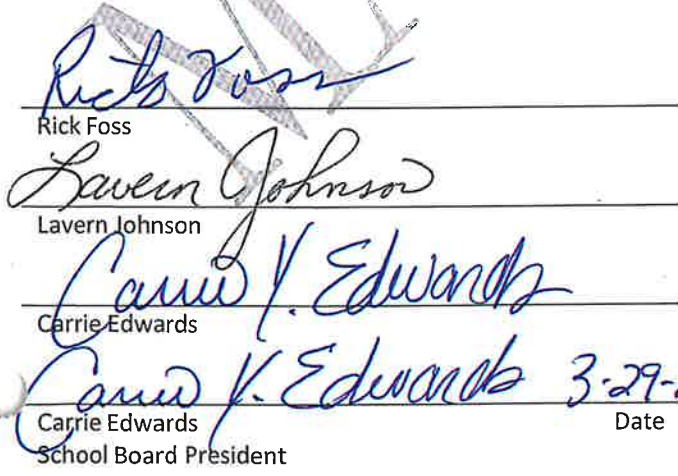 Rick Foss
Rick Foss
Lavern Johnson
Lavern Johnson
Carrie Y. Edwards
Carrie Edwards
Carrie Y. Edwards 3-29-
Carrie Edwards Date
School Board President